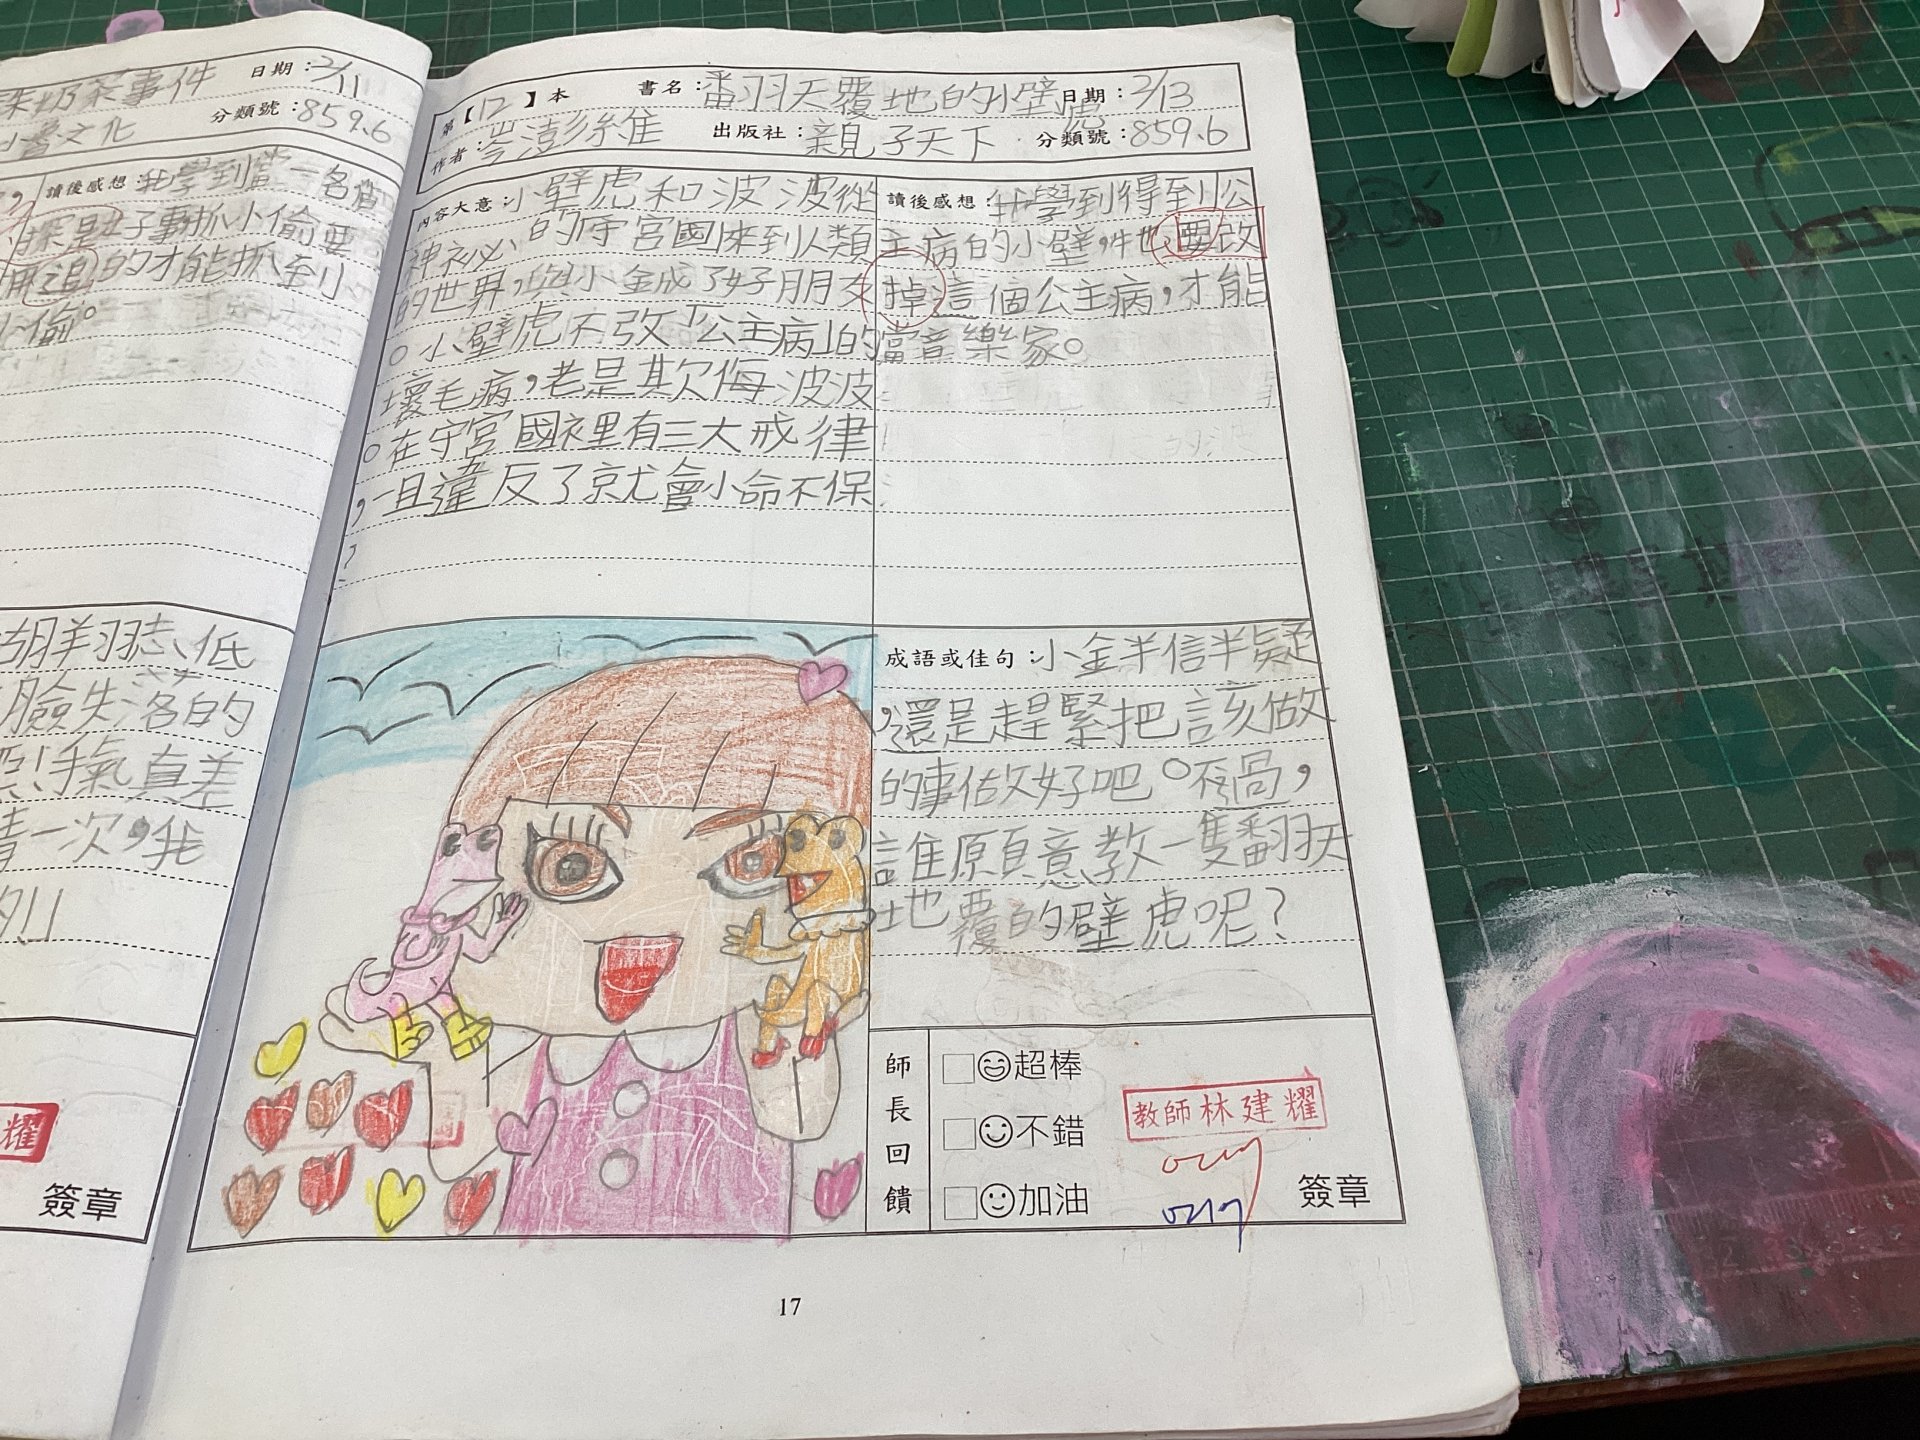 奶茶事件 日期：2/11
魯文化 分類號：859.6
讀後感想：我學到當一名偵
探是好動抓小偷要
用追的才能抓到小
小偷。
胡羊羽誌、低
臉失落的
手氣真差
一次，我
簽章
第【12】本 書名：番羽天覆地的小壁虎 日期：2/13
作者：岑澎維 出版社：親子天下 分類號：859.6
內容大意：小壁虎和波波從
神祕的守宮國來到人類
的世界，與小金成了好朋友
。小壁虎不改「公主病」的
壞毛病，老是欺侮波波
。在守宮國裡有三大戒律
，一旦違反了就會小命不保
讀後感想：我學到得到公
主病的小壁，牠要改
掉這個公主病，才能
當音樂家。
成語或佳句：小金半信半疑
，還是趕緊把該做
的事做好吧。不過，
誰願意教一隻翻天
地覆的壁虎呢？
師長回饋
超棒
不錯
加油
教師林建耀
簽章
17